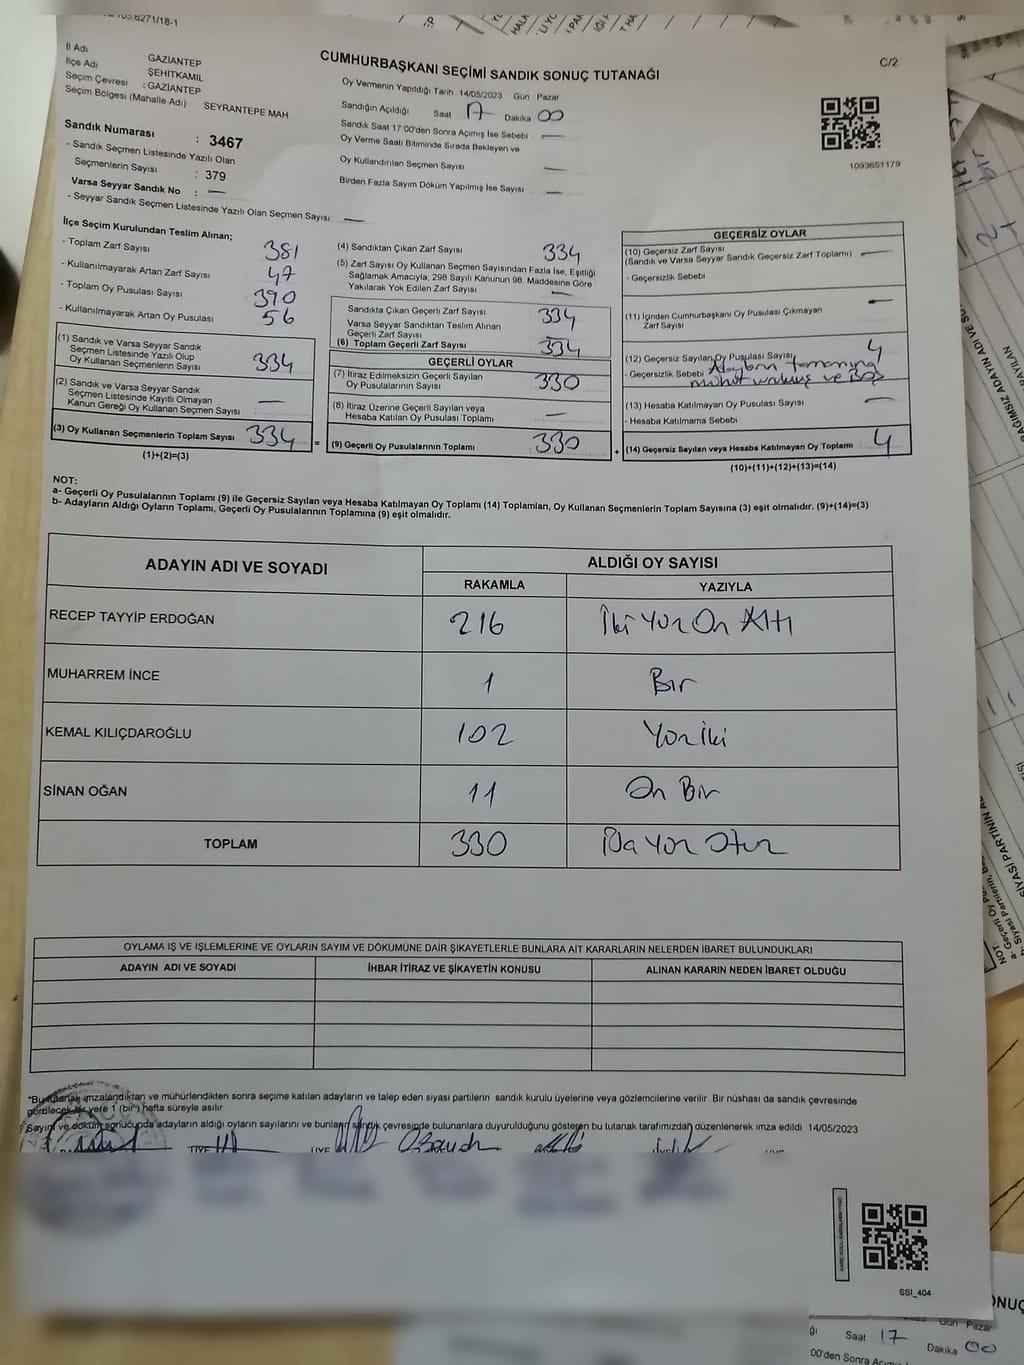 CUMHURBAŞKANI SEÇİMİ SANDIK SONUÇ TUTANAĞI
C/2
İl Adı GAZİANTEP
İlçe Adı ŞEHİTKAMİL
Seçim Çevresi : GAZİANTEP
Seçim Bölgesi (Mahalle Adı) SEYRANTEPE MAH
Sandık Numarası : 3467
- Sandık Seçmen Listesinde Yazılı Olan
Seçmenlerin Sayısı : 379
Varsa Seyyar Sandık No : —
- Seyyar Sandık Seçmen Listesinde Yazılı Olan Seçmen Sayısı: —
Oy Vermenin Yapıldığı Tarih 14/05/2023 Gün Pazar
Sandığın Açıldığı Saat 17 Dakika 00
Sandık Saat 17:00'den Sonra Açımış İse Sebebi —
Oy Verme Saati Bitiminde Sırada Bekleyen ve
Oy Kullandırılan Seçmen Sayısı —
Birden Fazla Sayım Döküm Yapılmış İse Sayısı —
1093651179
İlçe Seçim Kurulundan Teslim Alınan;
- Toplam Zarf Sayısı 381
- Kullanılmayarak Artan Zarf Sayısı 47
- Toplam Oy Pusulası Sayısı 390
- Kullanılmayarak Artan Oy Pusulası 56
(1) Sandık ve Varsa Seyyar Sandık
Seçmen Listesinde Yazılı Olup
Oy Kullanan Seçmenlerin Sayısı 334
(2) Sandık ve Varsa Seyyar Sandık
Seçmen Listesinde Kayıtlı Olmayan
Kanun Gereği Oy Kullanan Seçmen Sayısı : —
(3) Oy Kullanan Seçmenlerin Toplam Sayısı 334 =
(1)+(2)=(3)
(4) Sandıktan Çıkan Zarf Sayısı 334
(5) Zarf Sayısı Oy Kullanan Seçmen Sayısından Fazla İse, Eşitliği
Sağlamak Amacıyla, 298 Sayılı Kanunun 98. Maddesine Göre
Yakılarak Yok Edilen Zarf Sayısı —
Sandıkta Çıkan Geçerli Zarf Sayısı 334
Varsa Seyyar Sandıktan Teslim Alınan
Geçerli Zarf Sayısı
(6) Toplam Geçerli Zarf Sayısı 334
GEÇERLİ OYLAR
(7) İtiraz Edilmeksizin Geçerli Sayılan
Oy Pusulalarının Sayısı 330
(8) İtiraz Üzerine Geçerli Sayılan veya
Hesaba Katılan Oy Pusulası Toplamı —
(9) Geçerli Oy Pusulalarının Toplamı : 330 +
GEÇERSİZ OYLAR
(10) Geçersiz Zarf Sayısı
(Sandık ve Varsa Seyyar Sandık Geçersiz Zarf Toplamı) —
- Geçersizlik Sebebi
(11) İçinden Cumhurbaşkanı Oy Pusulası Çıkmayan
Zarf Sayısı —
(12) Geçersiz Sayılan Oy Pusulası Sayısı 4
- Geçersizlik Sebebi
(13) Hesaba Katılmayan Oy Pusulası Sayısı —
- Hesaba Katılmama Sebebi
(14) Geçersiz Sayılan veya Hesaba Katılmayan Oy Toplamı : 4
(10)+(11)+(12)+(13)=(14)
NOT:
a- Geçerli Oy Pusulalarının Toplamı (9) ile Geçersiz Sayılan veya Hesaba Katılmayan Oy Toplamı (14) Toplamları, Oy Kullanan Seçmenlerin Toplam Sayısına (3) eşit olmalıdır. (9)+(14)=(3)
b- Adayların Aldığı Oyların Toplamı, Geçerli Oy Pusulalarının Toplamına (9) eşit olmalıdır.
ADAYIN ADI VE SOYADI ALDIĞI OY SAYISI
RAKAMLA YAZIYLA
RECEP TAYYİP ERDOĞAN 216 İki Yüz On Altı
MUHARREM İNCE 1 Bir
KEMAL KILIÇDAROĞLU 102 Yüz İki
SİNAN OĞAN 11 On Bir
TOPLAM 330
OYLAMA İŞ VE İŞLEMLERİNE VE OYLARIN SAYIM VE DÖKÜMÜNE DAİR ŞİKAYETLERLE BUNLARA AİT KARARLARIN NELERDEN İBARET BULUNDUKLARI
ADAYIN ADI VE SOYADI İHBAR İTİRAZ VE ŞİKAYETİN KONUSU ALINAN KARARIN NEDEN İBARET OLDUĞU
*Bu tutanak imzalandıktan ve mühürlendikten sonra seçime katılan adayların ve talep eden siyasi partilerin sandık kurulu üyelerine veya gözlemcilerine verilir. Bir nüshası da sandık çevresinde
görülecek bir yere 1 (bir) hafta süreyle asılır.
Sayım ve döküm sonucunda adayların aldığı oyların sayılarını ve bunların sandık çevresinde bulunanlara duyurulduğunu gösteren bu tutanak tarafımızdan düzenlenerek imza edildi. 14/05/2023
SSI_404
Gün Pazar
Saat 17 Dakika 00